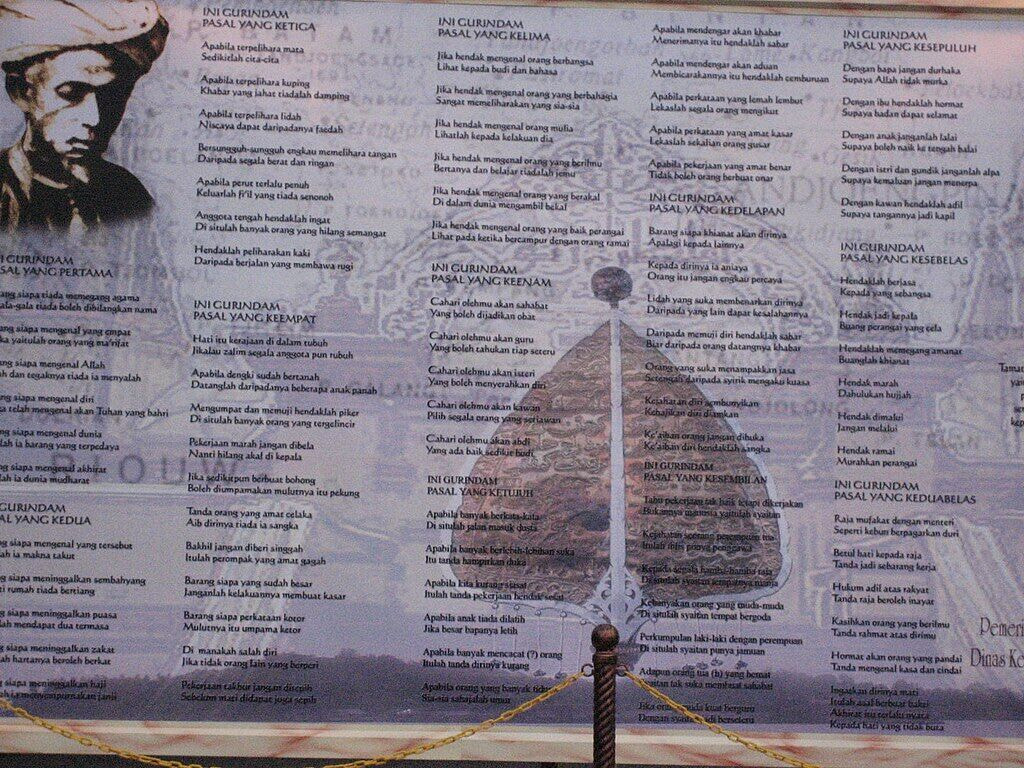 INI GURINDAM
PASAL YANG PERTAMA
ang siapa tiada memegang agama
ala-gala tiada boleh dibilangkan nama
ng siapa mengenal yang empat
ka yaitulah orang yang ma'rifat
ng siapa mengenal Allah
h dan tegaknya tiada ia menyalah
ng siapa mengenal diri
a telah mengenal akan Tuhan yang bahri
ng siapa mengenal dunia
lah ia barang yang terpedaya
ng siapa mengenal akhirat
lah ia dunia mudharat
GURINDAM
PASAL YANG KEDUA
ng siapa mengenal yang tersebut
lah ia makna takut
g siapa meninggalkan sembahyang
ti rumah tiada bertiang
g siapa meninggalkan puasa
lah mendapat dua termasa
g siapa meninggalkan zakat
lah hartanya beroleh berkat
g siapa meninggalkan haji
ah ia menyempurnakan janji
INI GURINDAM
PASAL YANG KETIGA
Apabila terpelihara mata
Sedikitlah cita-cita
Apabila terpelihara kuping
Khabar yang jahat tiadalah damping
Apabila terpelihara lidah
Niscaya dapat daripadanya faedah
Bersungguh-sungguh engkau memelihara tangan
Daripada segala berat dan ringan
Apabila perut terlalu penuh
Keluarlah fi'il yang tiada senonoh
Anggota tengah hendaklah ingat
Di situlah banyak orang yang hilang semangat
Hendaklah peliharakan kaki
Daripada berjalan yang membawa rugi
INI GURINDAM
PASAL YANG KEEMPAT
Hati itu kerajaan di dalam tubuh
Jikalau zalim segala anggota pun tubuh
Apabila dengki sudah bertanah
Datanglah daripadanya beberapa anak panah
Mengumpat dan memuji hendaklah pikir
Di situlah banyak orang yang tergelincir
Pekerjaan marah jangan dibela
Nanti hilang akal di kepala
Jika sedikitpun berbuat bohong
Boleh diumpamakan mulutnya itu pekung
Tanda orang yang amat celaka
Aib dirinya tiada ia sangka
Bakhil jangan diberi singgah
Itulah perompak yang amat gagah
Barang siapa yang sudah besar
Janganlah kelakuannya membuat kasar
Barang siapa perkataan kotor
Mulutnya itu umpama ketor
Di manakah salah diri
Jika tidak orang lain yang berperi
Pekerjaan takbur jangan direpih
Sebelum mati didapat juga sepih
INI GURINDAM
PASAL YANG KELIMA
Jika hendak mengenal orang berbangsa
Lihat kepada budi dan bahasa
Jika hendak mengenal orang yang berbahagia
Sangat memeliharakan yang sia-sia
Jika hendak mengenal orang mulia
Lihatlah kepada kelakuan dia
Jika hendak mengenal orang yang berilmu
Bertanya dan belajar tiadalah jemu
Jika hendak mengenal orang yang berakal
Di dalam dunia mengambil bekal
Jika hendak mengenal orang yang baik perangai
Lihat pada ketika bercampur dengan orang ramai
INI GURINDAM
PASAL YANG KEENAM
Cahari olehmu akan sahabat
Yang boleh dijadikan obat
Cahari olehmu akan guru
Yang boleh tahukan tiap seteru
Cahari olehmu akan isteri
Yang boleh menyerahkan diri
Cahari olehmu akan kawan
Pilih segala orang yang setiawan
Cahari olehmu akan abdi
Yang ada baik sedikit budi
INI GURINDAM
PASAL YANG KETUJUH
Apabila banyak berkata-kata
Di situlah jalan masuk dusta
Apabila banyak berlebih-lebihan suka
Itu tanda hampirkan duka
Apabila kita kurang siasat
Itulah tanda pekerjaan hendak sesat
Apabila anak tiada dilatih
Jika besar bapanya letih
Apabila banyak mencacat (?) orang
Itulah tanda dirinya kurang
Apabila orang yang banyak tidur
Sia-sia sahajalah umur
Apabila mendengar akan khabar
Menerimanya itu hendaklah sabar
Apabila mendengar akan aduan
Membicarakannya itu hendaklah cemburuan
Apabila perkataan yang lemah lembut
Lekaslah segala orang mengikut
Apabila perkataan yang amat kasar
Lekaslah sekalian orang gusar
Apabila pekerjaan yang amat benar
Tidak boleh orang berbuat onar
INI GURINDAM
PASAL YANG KEDELAPAN
Barang siapa khianat akan dirinya
Apalagi kepada lainnya
Kepada dirinya ia aniaya
Orang itu jangan engkau percaya
Lidah yang suka membenarkan dirinya
Daripada yang lain dapat kesalahannya
Daripada memuji diri hendaklah sabar
Biar daripada orang datangnya khabar
Orang yang suka menampakkan jasa
Setengah daripada syirik mengaku kuasa
Kejahatan diri sembunyikan
Kebajikan diri diamkan
Ke'aiban orang jangan dibuka
Ke'aiban diri hendaklah sangka
INI GURINDAM
PASAL YANG KESEMBILAN
Tahu pekerjaan tak baik tetapi dikerjakan
Bukannya manusia yaitulah syaitan
Kejahatan seorang perempuan tua
Itulah iblis punya penggawa
Kepada segala hamba-hamba raja
Di situlah syaitan tempatnya manja
Kebanyakan orang yang muda-muda
Di situlah syaitan tempat bergoda
Perkumpulan laki-laki dengan perempuan
Di situlah syaitan punya jamuan
Adapun orang tua (h) yang hemat
Syaitan tak suka membuat sahabat
Jika orang muda kuat berguru
Dengan syaitan jadi berseteru
INI GURINDAM
PASAL YANG KESEPULUH
Dengan bapa jangan durhaka
Supaya Allah tidak murka
Dengan ibu hendaklah hormat
Supaya badan dapat selamat
Dengan anak janganlah lalai
Supaya boleh naik ke tengah balai
Dengan istri dan gundik janganlah alpa
Supaya kemaluan jangan menerpa
Dengan kawan hendaklah adil
Supaya tangannya jadi kapil
INI GURINDAM
PASAL YANG KESEBELAS
Hendaklah berjasa
Kepada yang sebangsa
Hendak jadi kepala
Buang perangai yang cela
Hendaklah memegang amanat
Buanglah khianat
Hendak marah
Dahulukan hujjah
Hendak dimalui
Jangan melalui
Hendak ramai
Murahkan perangai
INI GURINDAM
PASAL YANG KEDUABELAS
Raja mufakat dengan menteri
Seperti kebun berpagarkan duri
Betul hati kepada raja
Tanda jadi sebarang kerja
Hukum adil atas rakyat
Tanda raja beroleh inayat
Kasihkan orang yang berilmu
Tanda rahmat atas dirimu
Hormat akan orang yang pandai
Tanda mengenal kasa dan cindai
Ingatkan dirinya mati
Itulah asal berbuat bakti
Akhirat itu terlalu nyata
Kepada hati yang tidak buta
Tamat
Pemeri
Dinas Ke